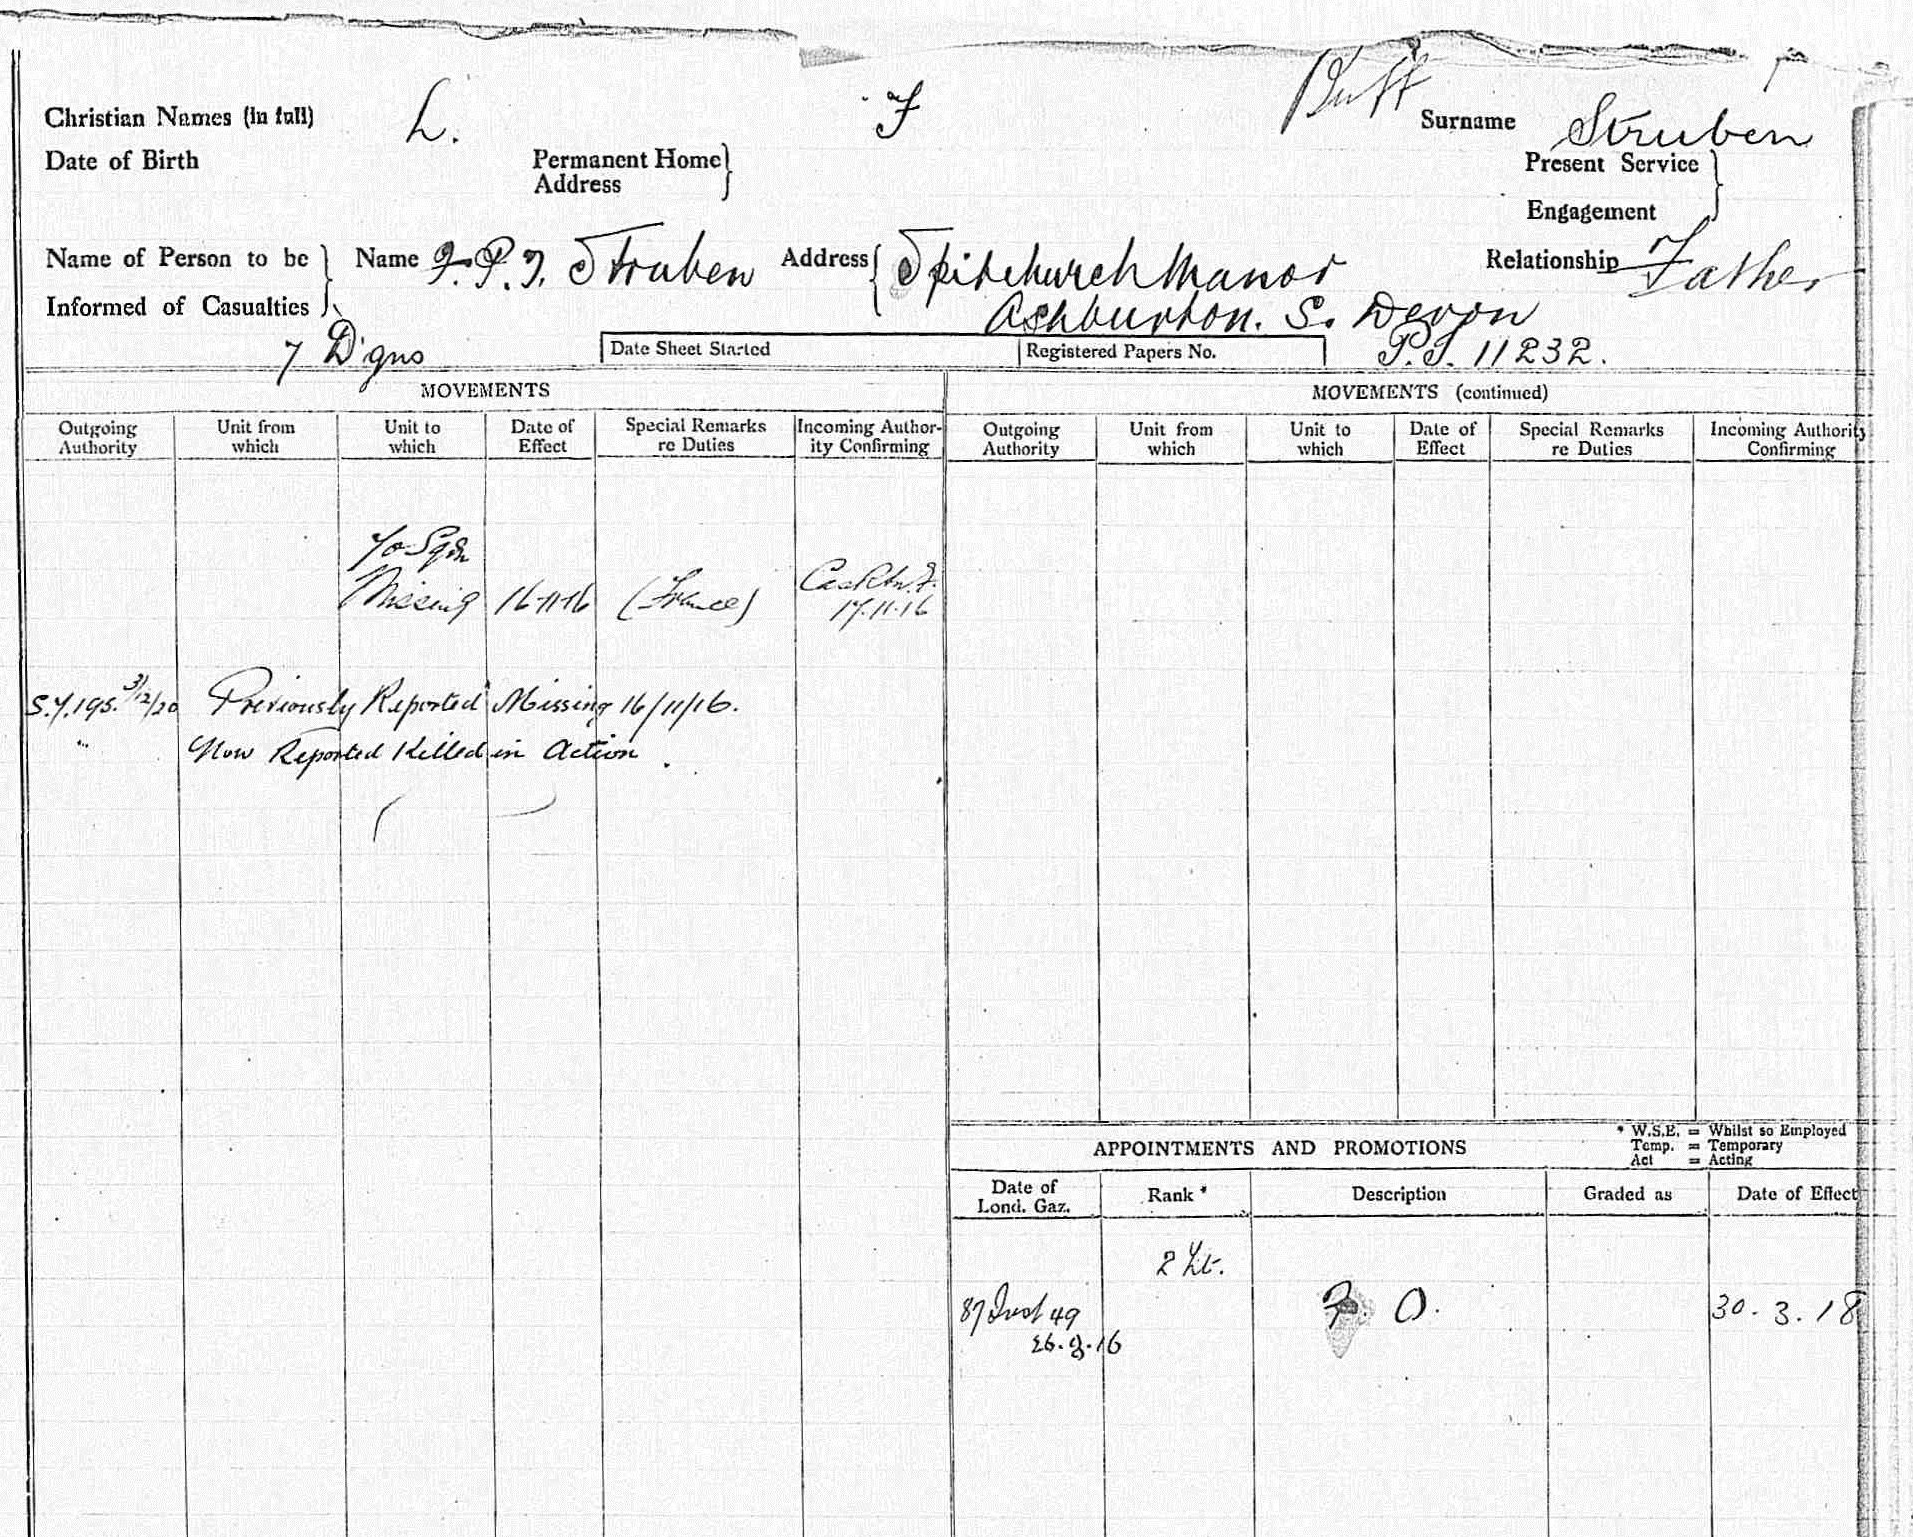 Christian Names (in full) L. F Buff Surname Struben
Date of Birth Permanent Home Address Present Service
Engagement
Name of Person to be Informed of Casualties Name F.P.T. Struben Address Spitchurch Manor Relationship Father
Ashburton. S. Devon
7 D'gns Date Sheet Started Registered Papers No. P.S. 11232.
MOVEMENTS
Outgoing Authority Unit from which Unit to which Date of Effect Special Remarks re Duties Incoming Authority Confirming
70 Sqdn
Missing 16-11-16 (France)
17.11.16
S.7.195. 3/12/20 Previously Reported Missing 16/11/16.
" Now Reported Killed in Action.
MOVEMENTS (continued)
Outgoing Authority Unit from which Unit to which Date of Effect Special Remarks re Duties Incoming Authority Confirming
APPOINTMENTS AND PROMOTIONS
* W.S.E. = Whilst so Employed
Temp. = Temporary
Act = Acting
Date of Lond. Gaz. Rank * Description Graded as Date of Effect
2 Lt.
87 49 F. O. 30. 3. 18